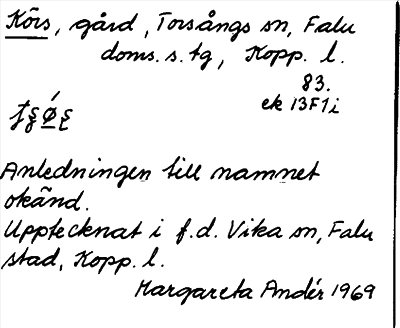 Kõrs, gård, Torsångs sn, Falu
doms. s. tg, Kopp. l.
83.
ek 13F1i
Anledningen till namnet
okänd.
Upptecknat i f.d. Vika sn, Falu
stad, Kopp. l.
Margareta Andér 1969